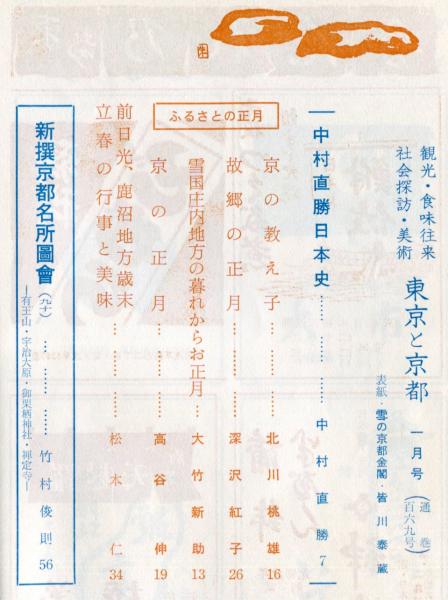 観光・食味往来
社会探訪・美術
東京と京都 一月号(通巻百六九号)
表紙・雪の京都金閣・皆川泰蔵
中村直勝日本史…………中村直勝 7
ふるさとの正月
京の教え子…………北川桃雄 16
故郷の正月…………深沢紅子 26
雪国庄内地方の暮れからお正月…大竹新助 13
京の正月…………高谷伸 19
前日光、鹿沼地方歳末
立春の行事と美味…………松本仁 34
新撰京都名所圖會(九十)…………竹村俊則 56
―有王山・宇治大原・御栗栖神社・禅定寺―